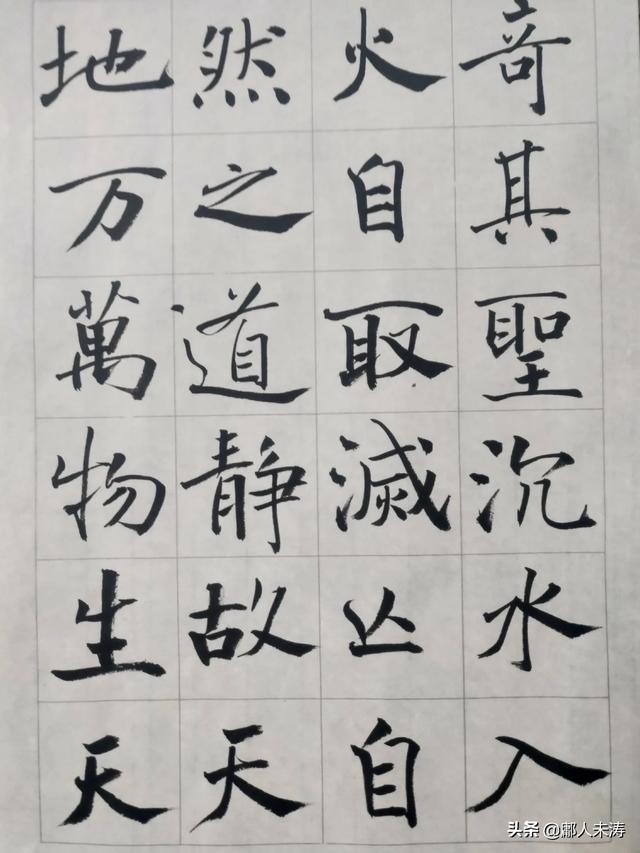 奇其聖沉水入
火自取滅亾自
然之道静故天
地万萬物生天
头条 @人未涛